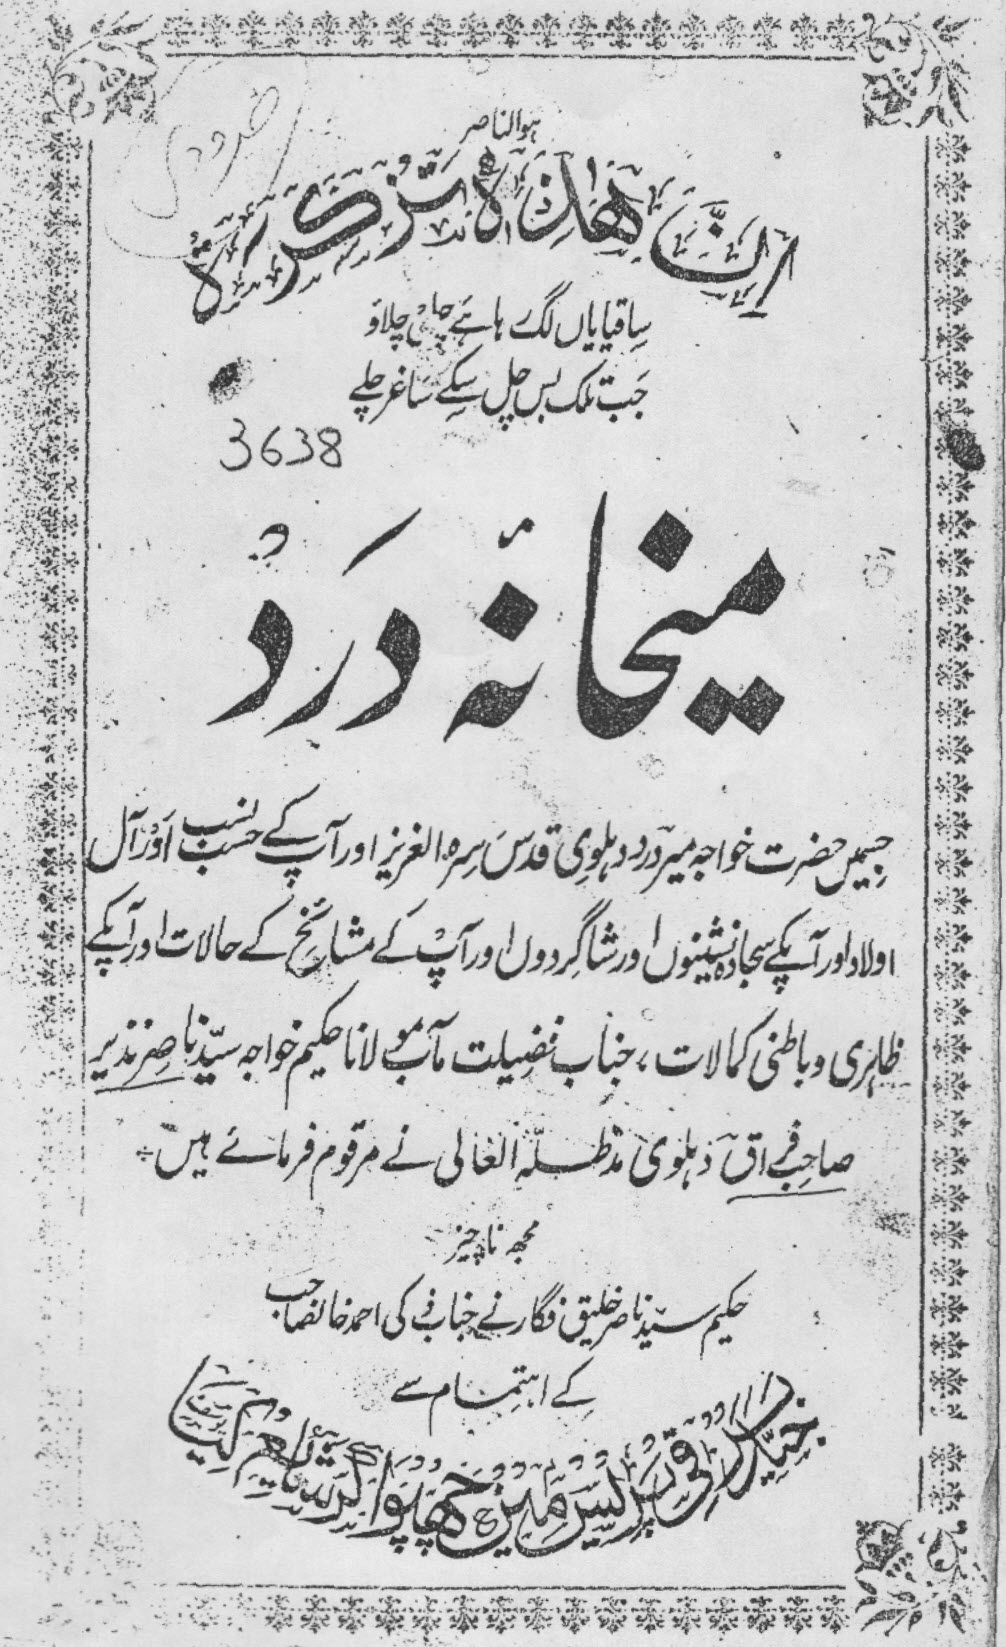 ہوالناصر
ان ھذہ تذکرۃ
ساقیا یاں لگ رہا ہے چل چلاؤ
جب تلک بس چل سکے ساغر چلے
3638
میخانۂ درد
جسمیں حضرت خواجہ میر درد دہلوی قدس سرہ العزیز اور آپ کے حسب نسب اور آل
اولاد اور آپکے سجادہ نشینوں اور شاگردوں اور آپ کے مشائخ کے حالات اور آپکے
ظاہری و باطنی کمالات، جناب فضیلت مآب مولانا حکیم خواجہ سیّد ناصر نذیر
صاحب فراق دہلوی مدظلہ العالی نے مرقوم فرمائے ہیں
مجھ ناچیز
حکیم سیّد ناصر خلیق فگار نے جناب ذکی احمد خانصاحب
کے اہتمام سے
جید برقی پریس میں چھپوا کر شائع کیا